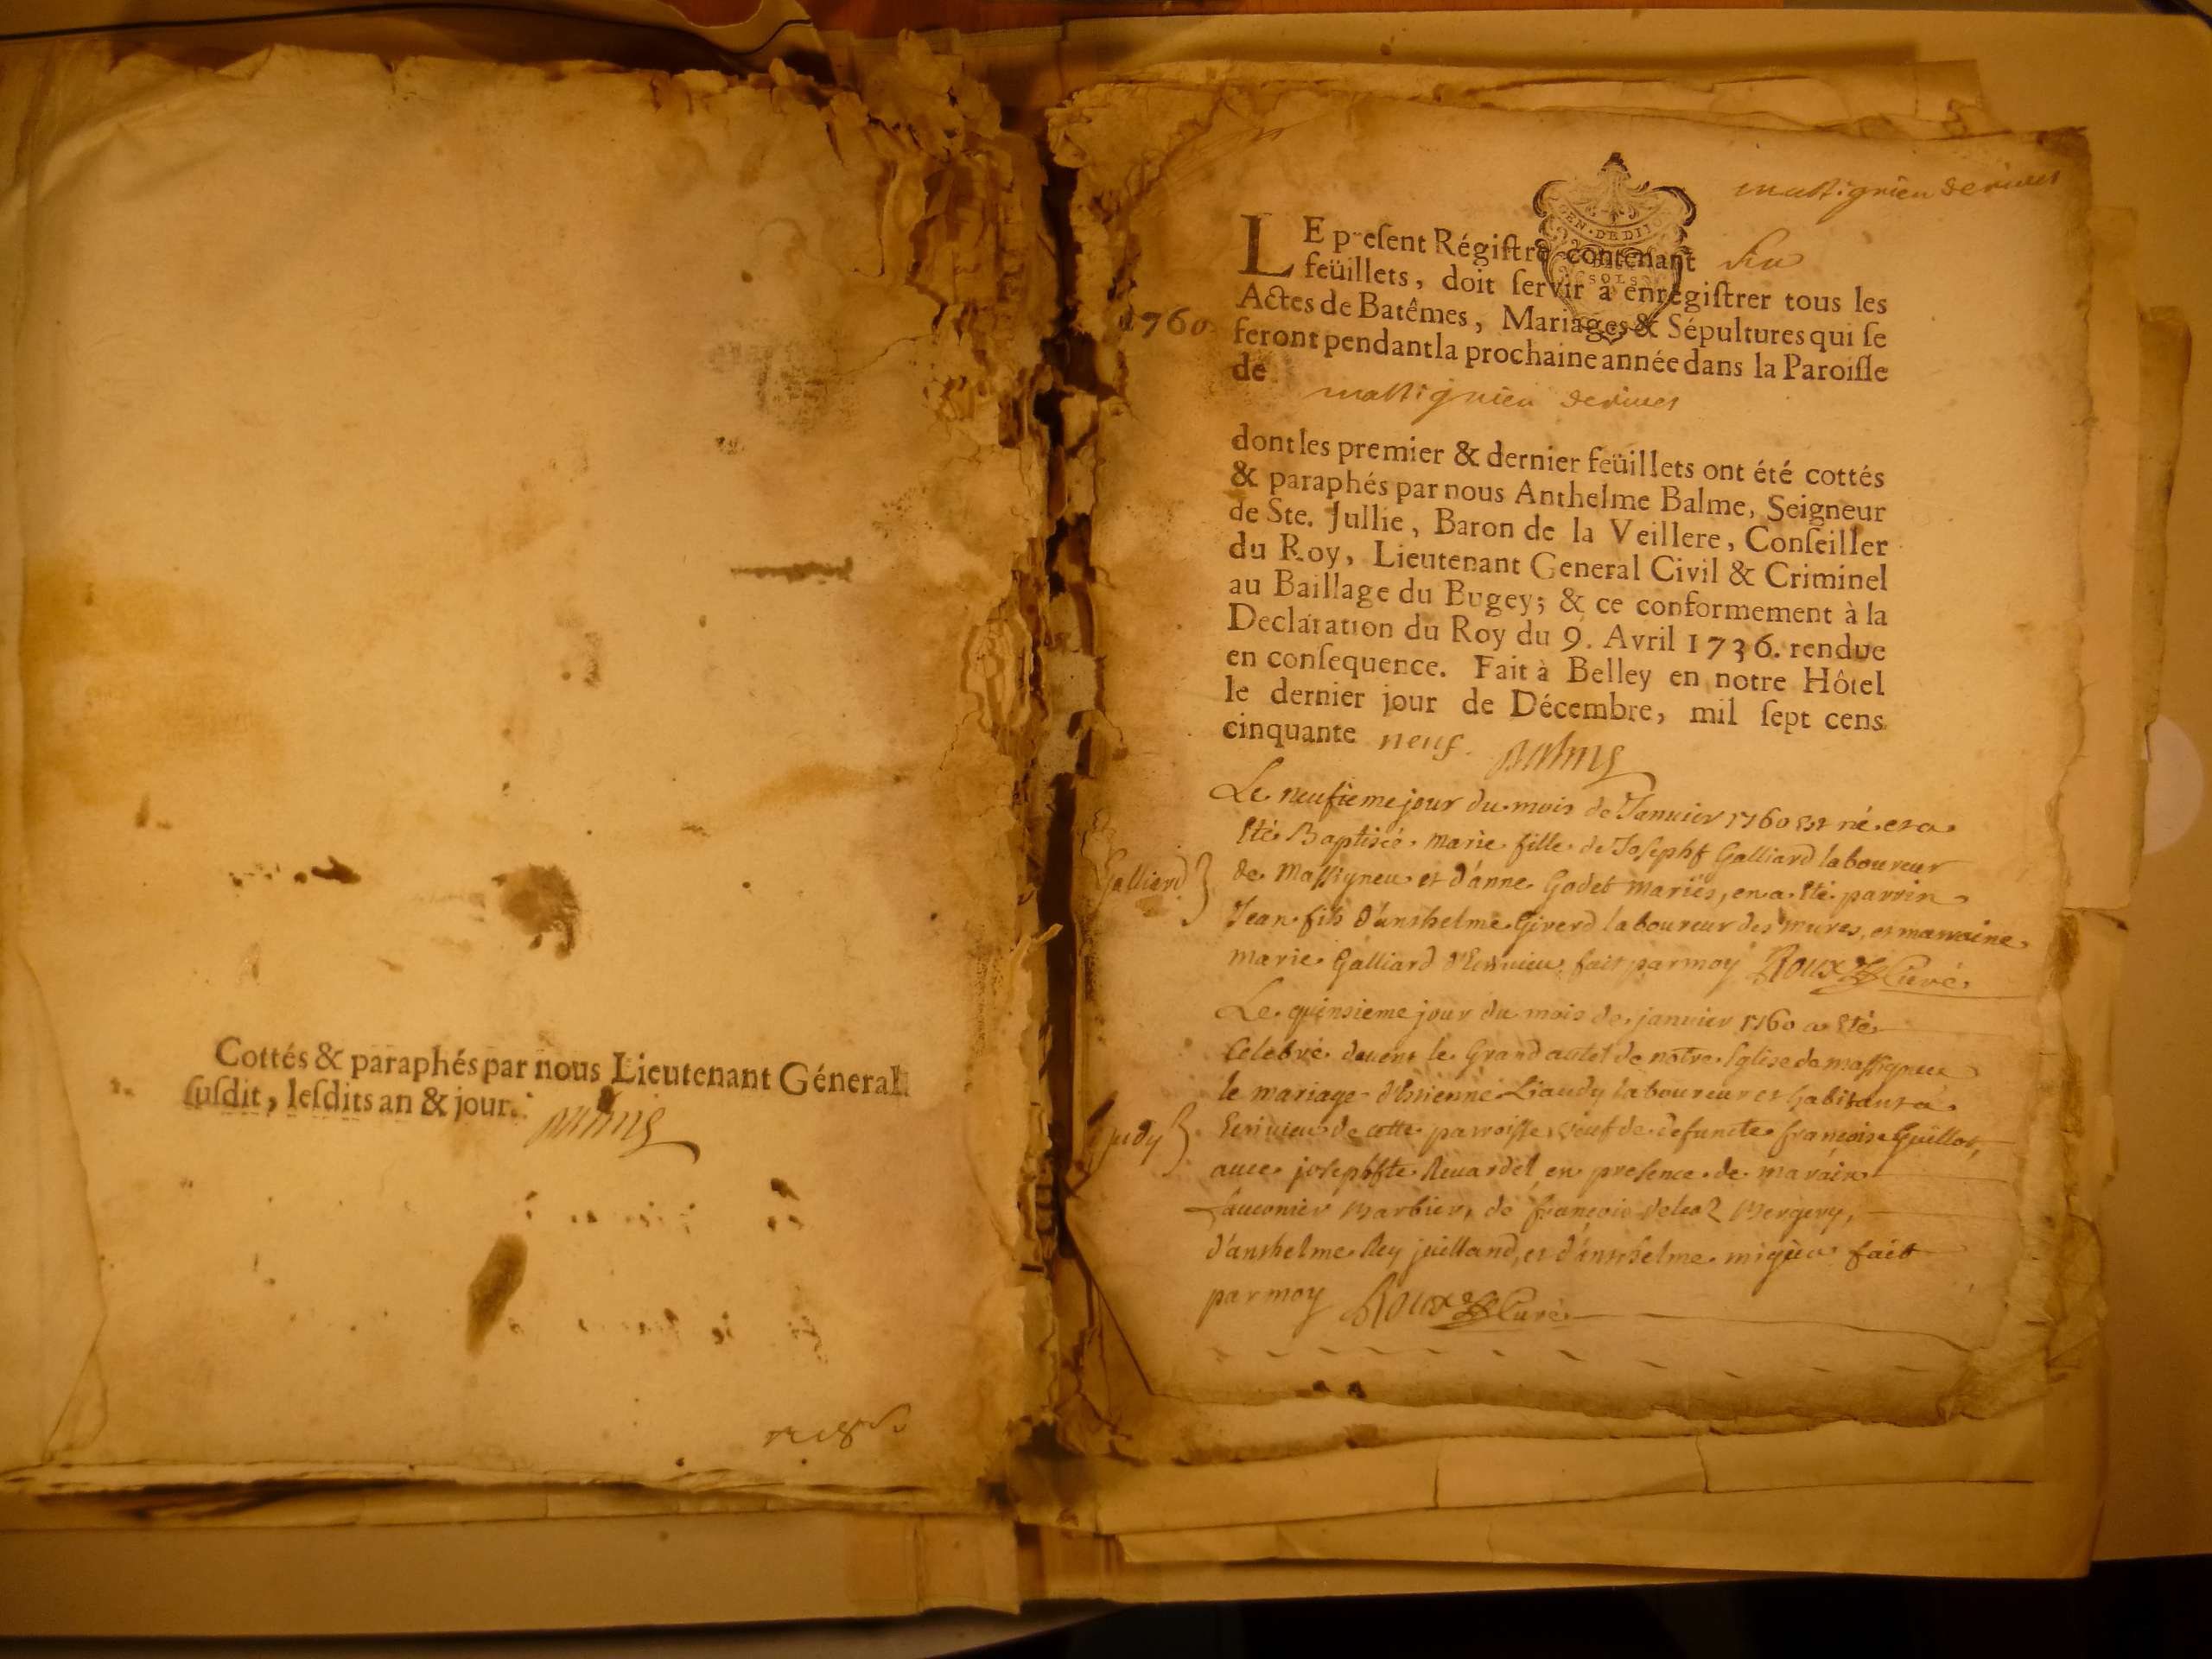 Cottés & paraphés par nous Lieutenant Géneral
ſuſdit, leſdits an & jour.
Balme
maſſignieu de rives
GEN. DE DIJON
LE preſent Régiſtre contenant ſix
feüillets, doit ſervir à enregiſtrer tous les
Actes de Batêmes, Mariages & Sépultures qui ſe
1760
feront pendant la prochaine année dans la Paroiſſe
de
maſſignieu de rives
dont les premier & dernier feüillets ont été cottés
& paraphés par nous Anthelme Balme, Seigneur
de Ste. Jullie, Baron de la Veillere, Conſeiller
du Roy, Lieutenant General Civil & Criminel
au Baillage du Bugey; & ce conformement à la
Declaration du Roy du 9. Avril 1736. rendue
en conſequence. Fait à Belley en notre Hôtel
le dernier jour de Décembre, mil ſept cens
cinquante neuf. Balme
Le neufieme jour du mois de Janvier 1760 est né et a
été Baptisée marie fille de Joseph Galliard laboureur
Galliard
de Maſſigneu et d'anne Godet mariés, en a été parrin
Jean fils d'anthelme Giverd laboureur des mures, et marraine
marie Galliard fait par moy Roux Curé
Le quinsieme jour du mois de janvier 1760 a été
Celebré devent le Grand autel de notre Eglise de maſſigneu
le mariage d'Etienne Liaudy laboureur et habitant a
udy
de cette parroiſſe veuf de defuncte françoise Guillot,
avec josephte Revardel en presence de
fauconier Barbier, de françois Mergery,
d'anthelme Rey juilland, et d'anthelme migieu fait
par moy Roux Curé